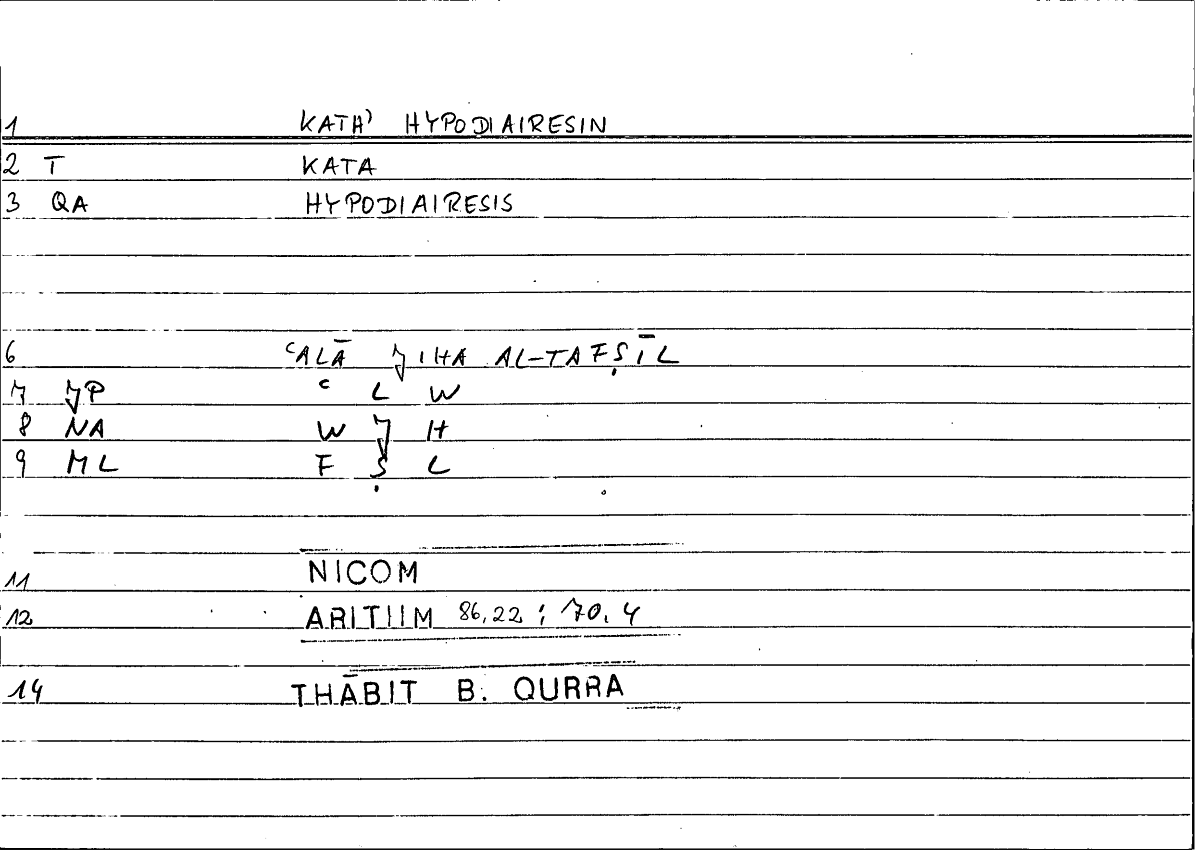 1 KATH' HYPODIAIRESIN
2 T KATA
3 QA HYPODIAIRESIS
6 ʿALĀ JIHA AL-TAFṢĪL
7 JP ʿ L W
8 NA W J H
9 ML F Ṣ L
11 NICOM
12 ARITHM 86,22 ; 70,4
14 THĀBIT B. QURRA